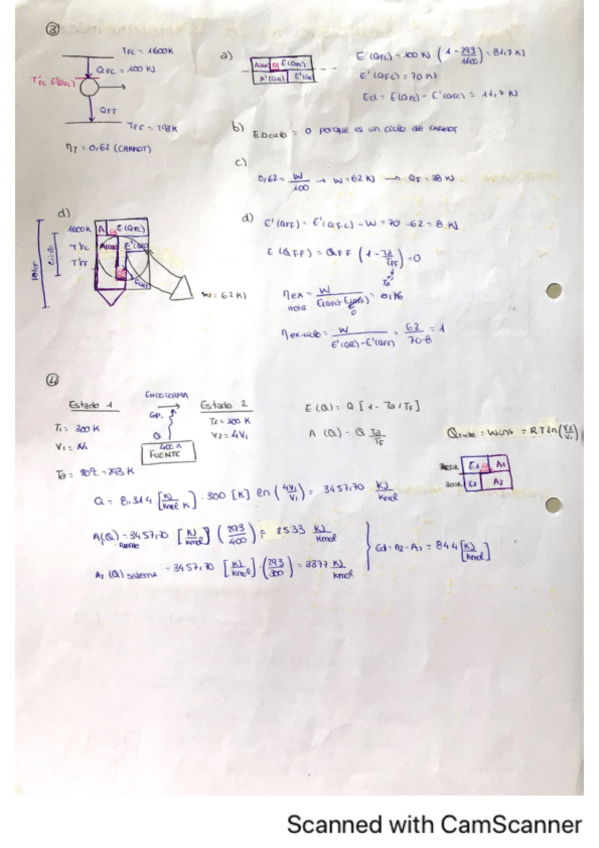 ③
TFC = 1600K
QFC = 100 KJ
T'FC E'(QFC)
QFF
TFF = 293K
ηT = 0,62 (CARNOT)
a)
E(QFC) = 100 KJ (1 - 293/1600) = 81,7 KJ
E'(QFC) = 70 KJ
Ed = E(QFC) - E'(QFC) = 11,7 KJ
b) EDciclo = 0 porque es un ciclo de CARNOT
c)
0,62 = W/100 → W = 62 KJ → QF = 38 KJ
d)
1600K A E(QFC)
W = 62 KJ
d) E'(QFF) = E'(QFC) - W = 70 - 62 = 8 KJ
E(QFF) = QFF (1 - Ta/TFF) = 0
ηex = W
motor
= 0,76
ηex ciclo = W / E'(QFC) - E'(QFF) = 62 / 70-8 = 1
④
Estado 1
T1 = 300K
V1 = V1
Ta = 20ºC = 293K
ISOTERMA
Q
400K
FUENTE
Estado 2
T2 = 300 K
V2 = 4V1
E(Q) = Q [1 - Ta/TF]
A(Q) = Q Ta/TF
= RT ln(V2/V1)
E1 A1
300K E2 A2
Q = 8,314 [KJ/Kmol K] · 300 [K] ln (4V1/V1) = 3457,70 KJ/Kmol
A1(Q) = 3457,70 [KJ/Kmol] (293/400) = 2533 KJ/Kmol
fuente
A2 (Q) sistema = 3457,70 [KJ/Kmol] (293/300) = 3377 KJ/Kmol
Ed = A2 - A1 = 844 [KJ/Kmol]
Scanned with CamScanner